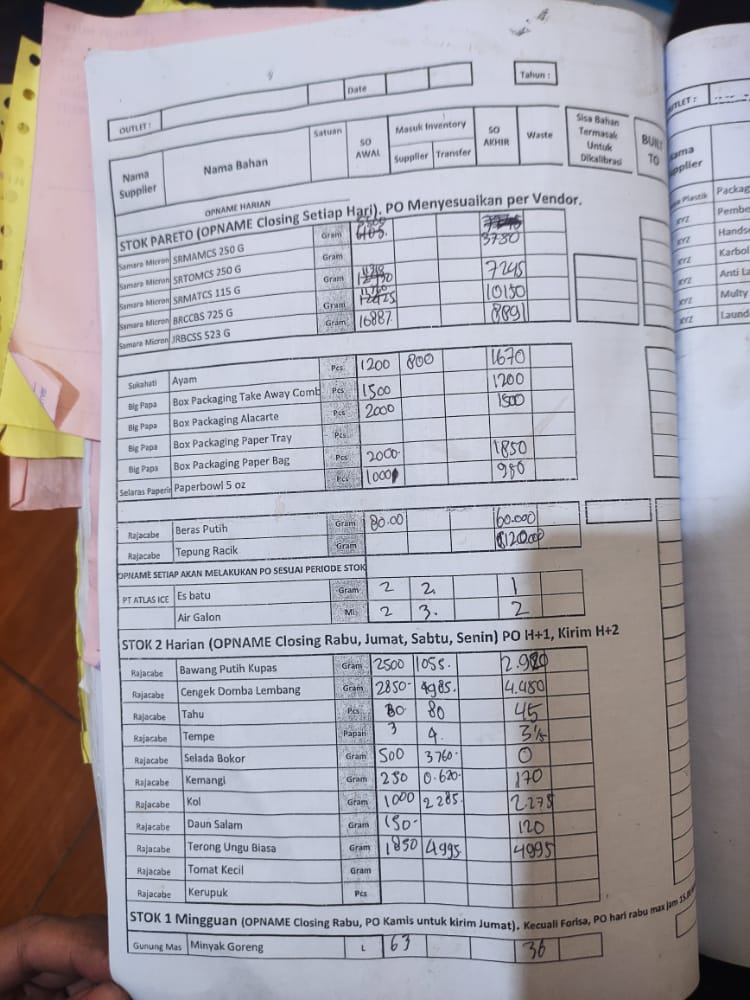 Tahun :
OUTLET : Date
Nama Supplier Nama Bahan Satuan SO AWAL Masuk Inventory Supplier Transfer SO AKHIR Waste Sisa Bahan Termasak Untuk Dikalibrasi BUILT TO
OPNAME HARIAN
STOK PARETO (OPNAME Closing Setiap Hari), PO Menyesuaikan per Vendor.
Samara Micron SRMAMCS 250 G Gram 3780
Samara Micron SRTOMCS 250 G Gram
Samara Micron SRMATCS 115 G Gram 7245
Samara Micron BRCCBS 725 G Gram 10150
Samara Micron JRBCSS 523 G Gram 16887 8891
Sukahati Ayam Pcs 1200 800 1670
Big Papa Box Packaging Take Away Comb Pcs 1500 1200
Big Papa Box Packaging Alacarte Pcs 2000 1500
Big Papa Box Packaging Paper Tray Pcs
Big Papa Box Packaging Paper Bag Pcs 2000 1850
Selaras Paperin Paperbowl 5 oz Pcs 1000 980
Rajacabe Beras Putih Gram 80.00 60.000
Rajacabe Tepung Racik Gram
OPNAME SETIAP AKAN MELAKUKAN PO SESUAI PERIODE STOK
PT ATLAS ICE Es batu Gram 2 2. 1
Air Galon 2 3. 2
STOK 2 Harian (OPNAME Closing Rabu, Jumat, Sabtu, Senin) PO H+1, Kirim H+2
Rajacabe Bawang Putih Kupas Gram 2500 1055.
Rajacabe Cengek Domba Lembang Gram 2850- 4985. 4.480
Rajacabe Tahu Pcs 80 45
Rajacabe Tempe Papan 3 4.
Rajacabe Selada Bokor Gram 500 3760. 0
Rajacabe Kemangi Gram 250 0.620. 170
Rajacabe Kol Gram 1000 2285. 2.275
Rajacabe Daun Salam Gram 150- 120
Rajacabe Terong Ungu Biasa Gram 1850 4995 4995
Rajacabe Tomat Kecil Gram
Rajacabe Kerupuk Pcs
STOK 1 Mingguan (OPNAME Closing Rabu, PO Kamis untuk kirim Jumat). Kecuali Forisa, PO hari rabu max jam
Gunung Mas Minyak Goreng L 63 36
OUTLET :
ama
plier
Plastik Packag
XYZ Pembe
XYZ Hands
XYZ Karbol
XYZ Anti La
XYZ Multy
XYZ Laund